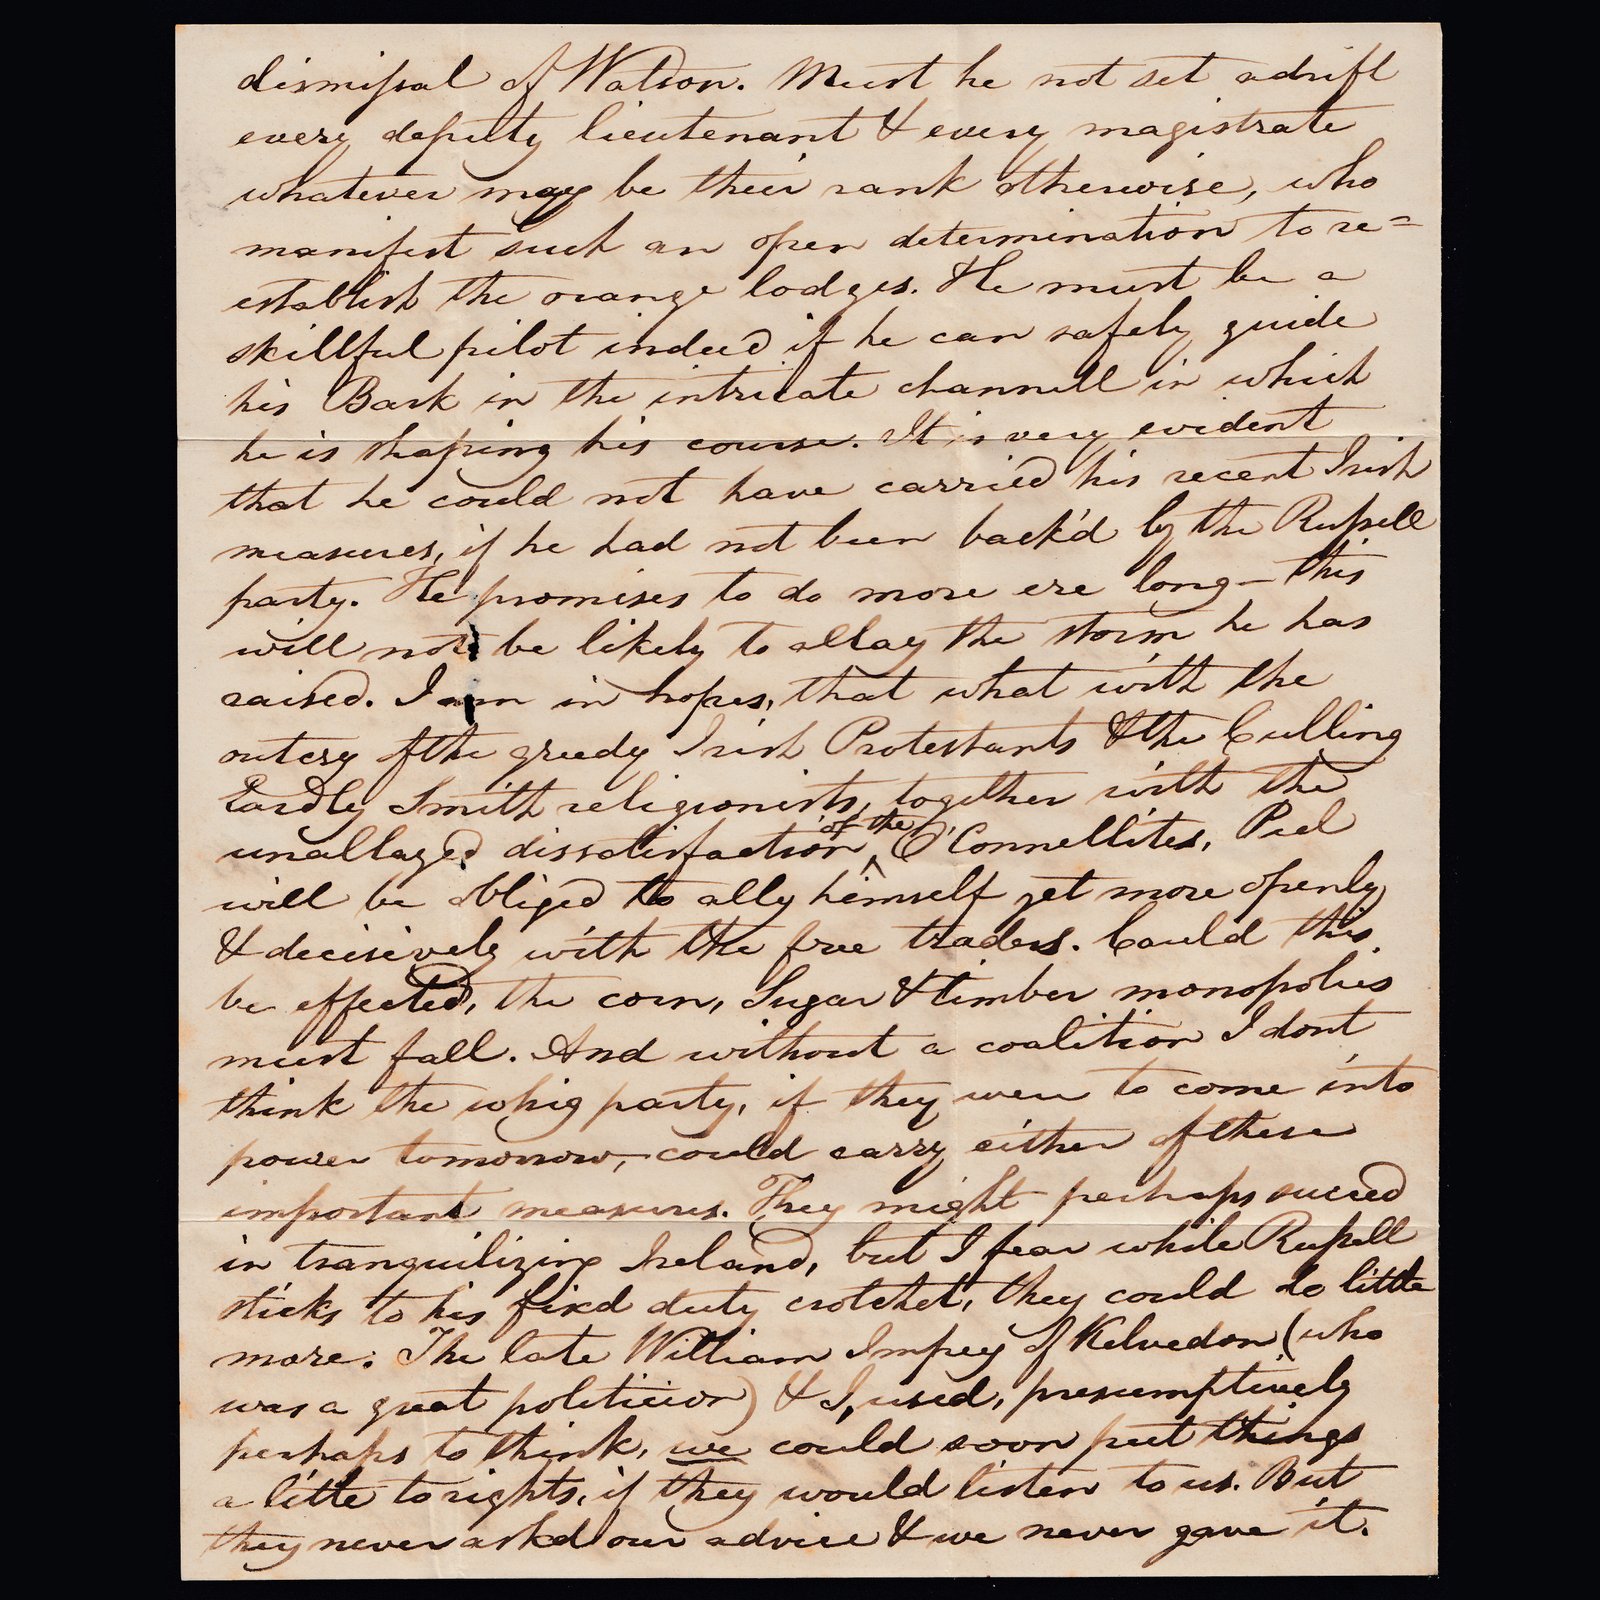 dismissal of Watson. Must he not set adrift
every deputy lieutenant & every magistrate
whatever may be their rank otherwise, who
manifest such an open determination to re=
establish the orange lodges. He must be a
skillful pilot indeed if he can safely guide
his Bark in the intricate channell in which
he is shaping his course. It is very evident
that he could not have carried his recent Irish
measures, if he had not been back'd by the Russell
party. He promises to do more ere long — this
will not be likely to allay the storm he has
raised. I am in hopes, that what with the
outcry of the greedy Irish Protestants & the Culling
Eardly Smith religionists, together with the
unallayed dissatisfaction of the O'Connellites, Peel
will be obliged to ally himself yet more openly
& decisively with the free traders. Could this
be effected, the corn, Sugar & timber monopolies
must fall. And without a coalition I dont
think the whig party, if they were to come into
power tomorrow, could carry either of these
important measures. They might perhaps succeed
in tranquilizing Ireland, but I fear while Russell
sticks to his fixd duty crotchet, they could do little
more. The late William Impey of Kelvedon (who
was a great politician) & I, used, presumptively
perhaps to think, we could soon put things
a little to rights, if they would listen to us. But
they never askd our advice & we never gave it.